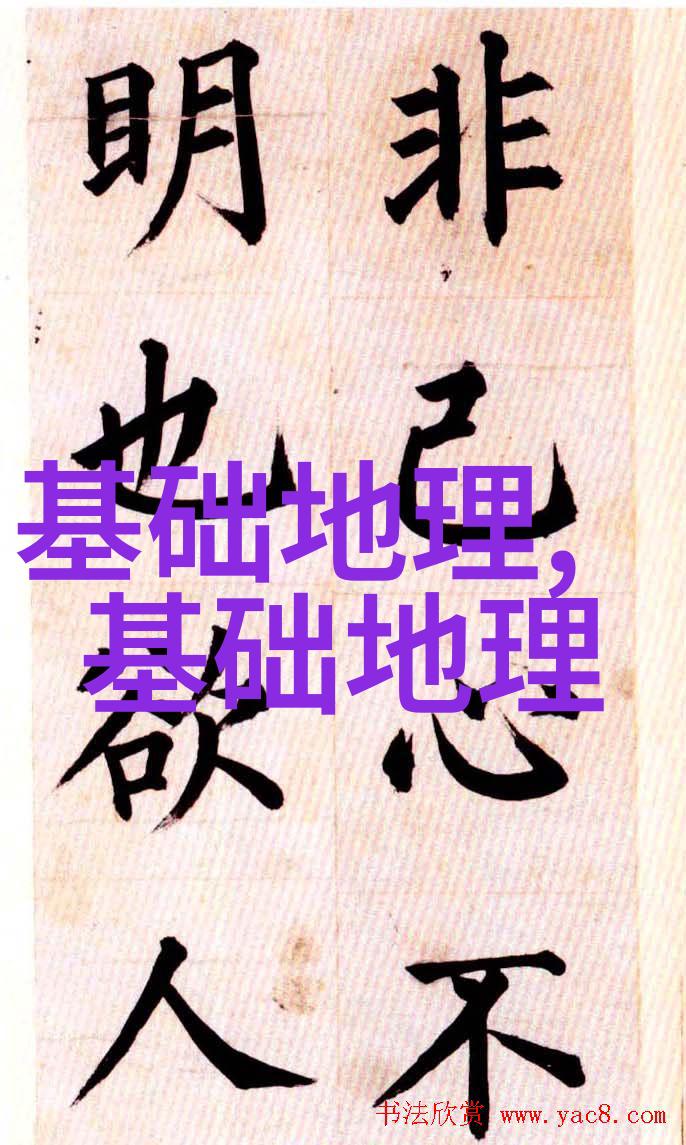 非己心不
眀也欲人
基础地理,
基础地理
书法欣赏 www.yac8.com